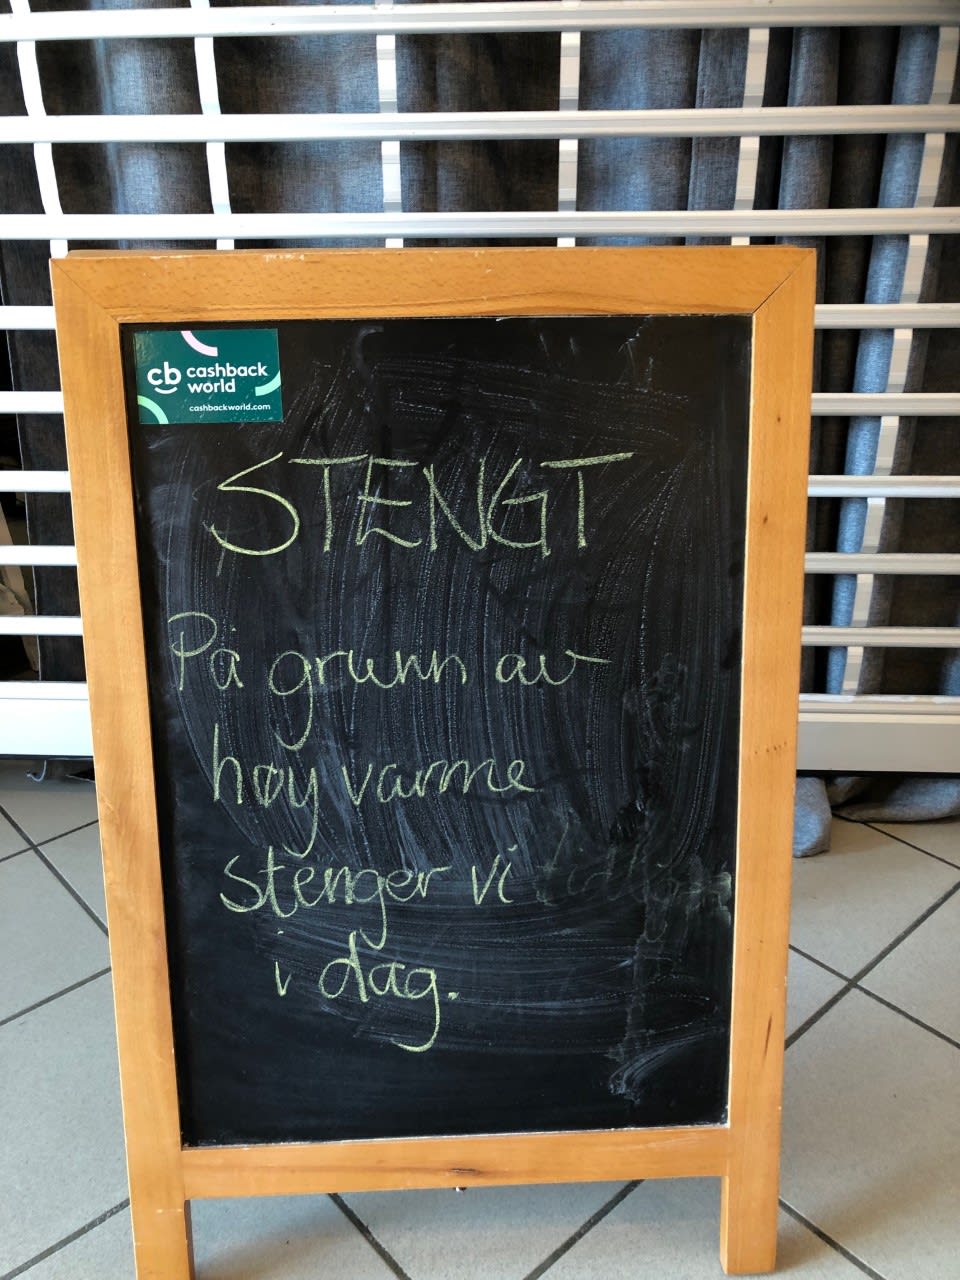 cb cashback
world
cashbackworld.com
STENGT
På grunn av
høy varme
stenger vi
i dag.